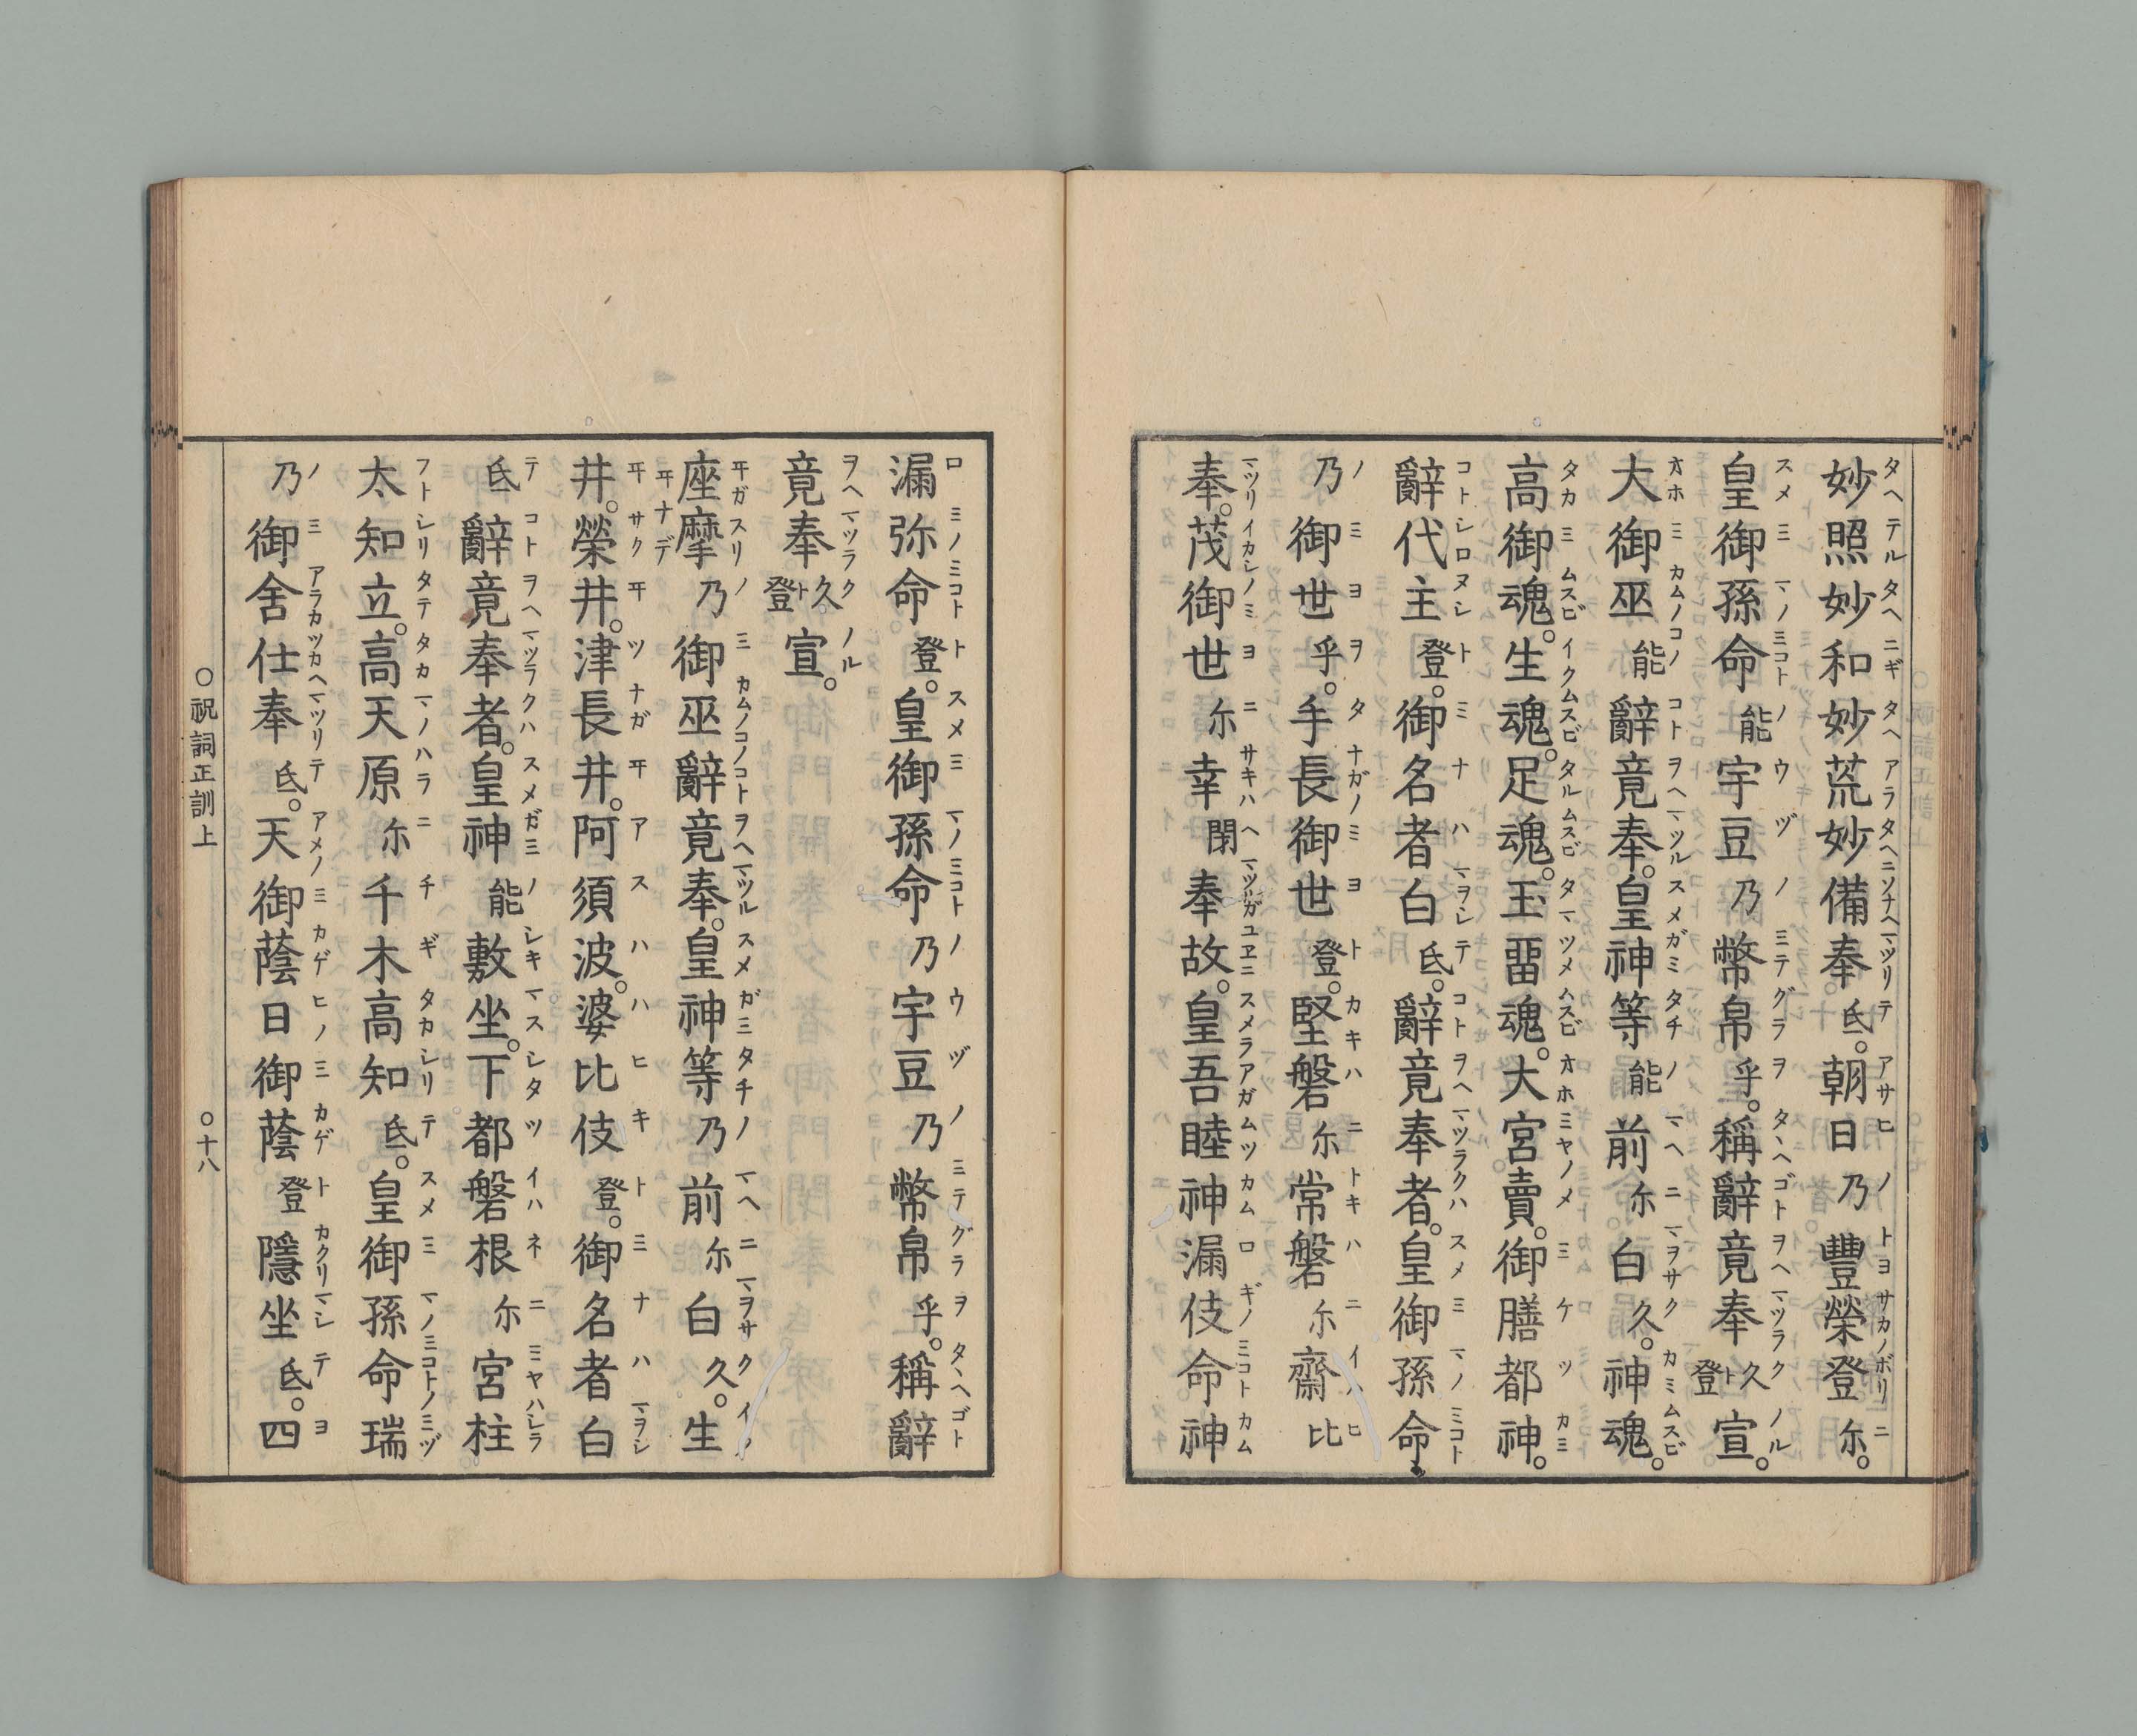 妙照妙和妙荒妙備奉氐。朝日乃豐榮登尓。
皇御孫命能宇豆乃幣帛乎。稱辭竟奉久登宣。
大御巫能辭竟奉。皇神等能前尓白久。神魂。
高御魂。生魂。足魂。玉畱魂。大宮賣。御膳都神。
辭代主登。御名者白氐。辭竟奉者。皇御孫命
乃御世乎。手長御世登。堅磐尓常磐尓齋比
奉。茂御世尓幸閇奉故。皇吾睦神漏伎命神
漏弥命登。皇御孫命乃宇豆乃幣帛乎。稱辭
竟奉久登宣。
座摩乃御巫辭竟奉。皇神等乃前尓白久。生
井。榮井。津長井。阿須波。婆比伎登。御名者白
氐辭竟奉者。皇神能敷坐。下都磐根尓宮柱
太知立。高天原尓千木高知氐。皇御孫命瑞
乃御舍仕奉氐。天御蔭日御蔭登隱坐氐。四
○祝詞正訓上
○十八